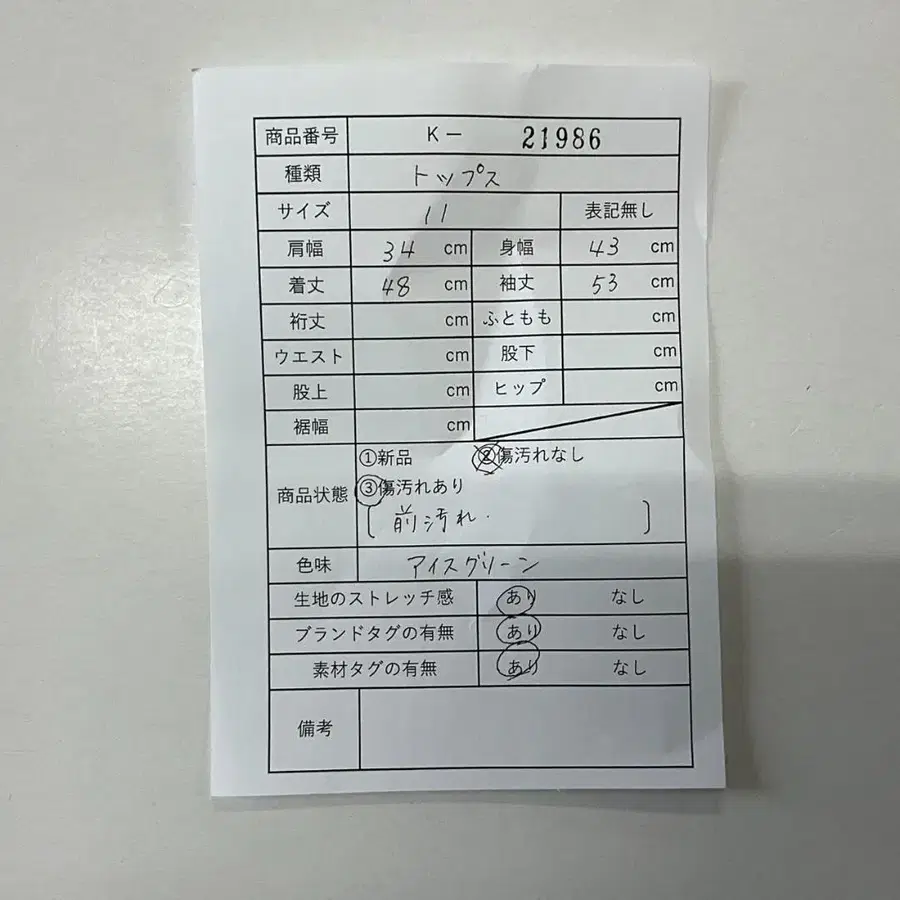 商品番号 K－ 21986
種類 トップス
サイズ 11 表記無し
肩幅 34 cm 身幅 43 cm
着丈 48 cm 袖丈 53 cm
裄丈 cm ふともも cm
ウエスト cm 股下 cm
股上 cm ヒップ cm
裾幅 cm
商品状態 ①新品 ②傷汚れなし
③傷汚れあり
[ 前汚れ. ]
色味 アイスグリーン
生地のストレッチ感 あり なし
ブランドタグの有無 あり なし
素材タグの有無 あり なし
備考